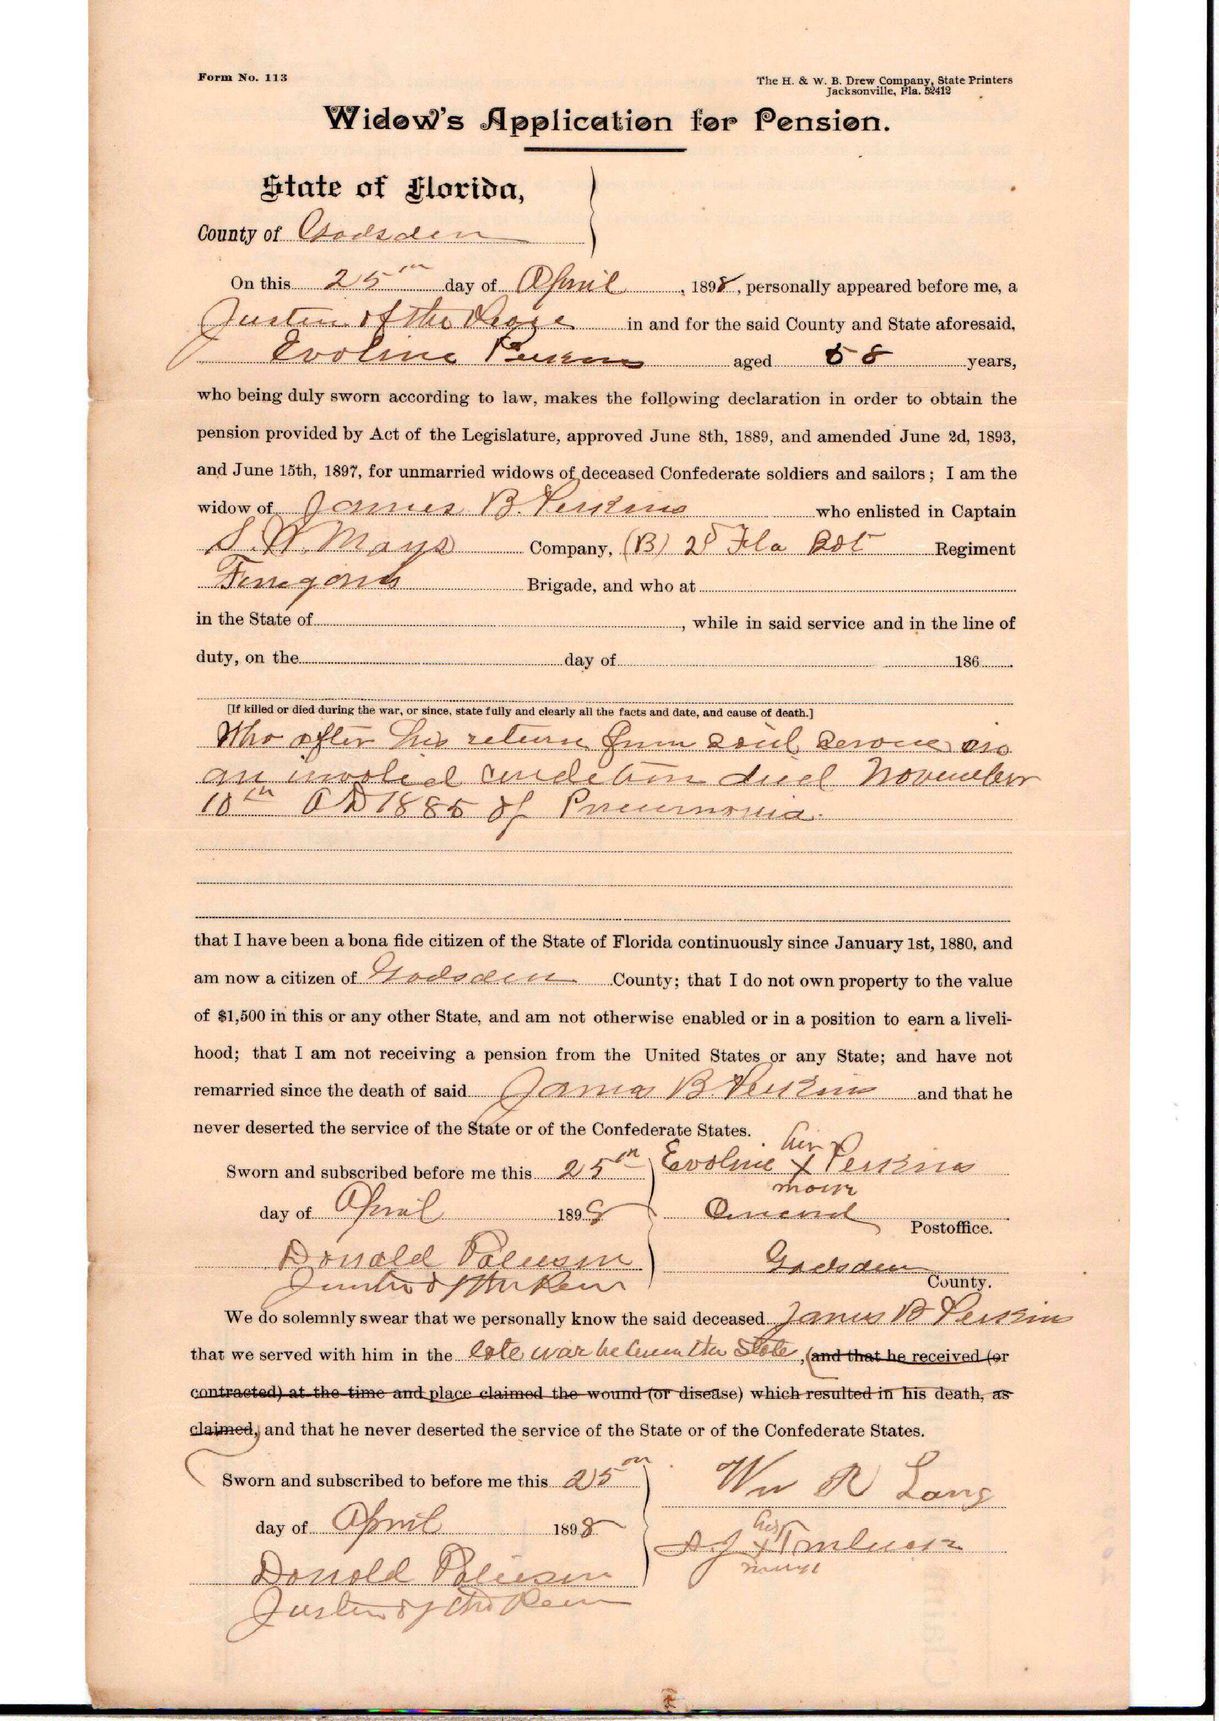 Form No. 113
The H. & W. B. Drew Company, State Printers
Jacksonville, Fla. 52412
Widow's Application for Pension.
State of Florida,
County of Gadsden
On this 25th day of April, 1898, personally appeared before me, a
Justice of the Peace in and for the said County and State aforesaid,
Evoline Perkins aged 58 years,
who being duly sworn according to law, makes the following declaration in order to obtain the
pension provided by Act of the Legislature, approved June 8th, 1889, and amended June 2d, 1893,
and June 15th, 1897, for unmarried widows of deceased Confederate soldiers and sailors; I am the
widow of James B. Perkins who enlisted in Captain
S. W. Mays Company, (B) 2d Fla Bat Regiment
Finegans Brigade, and who at
in the State of , while in said service and in the line of
duty, on the day of 186
[If killed or died during the war, or since, state fully and clearly all the facts and date, and cause of death.]
Who after his return from said service in
an invalid condition died November
10th AD 1885 of Pneumonia.
that I have been a bona fide citizen of the State of Florida continuously since January 1st, 1880, and
am now a citizen of Gadsden County; that I do not own property to the value
of $1,500 in this or any other State, and am not otherwise enabled or in a position to earn a liveli-
hood; that I am not receiving a pension from the United States or any State; and have not
remarried since the death of said James B Perkins and that he
never deserted the service of the State or of the Confederate States.
her
Sworn and subscribed before me this 25th Evoline X Perkins
mark
day of April 1898 Concord Postoffice.
Donald Gadsden County.
Justice of the Peace
We do solemnly swear that we personally know the said deceased James B Perkins
that we served with him in the late war between the State, (and that he received (or
contracted) at the time and place claimed the wound (or disease) which resulted in his death, as
claimed,) and that he never deserted the service of the State or of the Confederate States.
Sworn and subscribed to before me this 25th Wm R Lang
day of April 1898
his
X
mark
Donald
Justice of the Peace